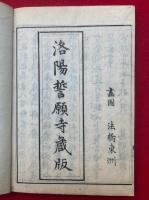 畫圖 法橋東洲
洛陽誓願寺藏版